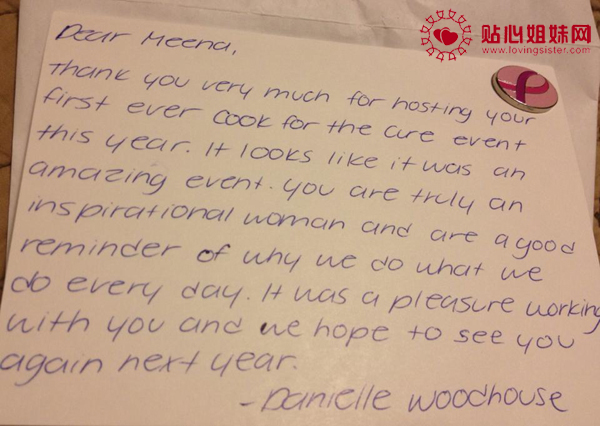 贴心姐妹网
www.lovingsister.com
Dear Meena,
Thank you very much for hosting your
first ever cook for the cure event
this year. It looks like it was an
amazing event. You are truly an
inspirational woman and are a good
reminder of why we do what we
do every day. It was a pleasure working
with you and we hope to see you
again next year.
-Danielle Woodhouse